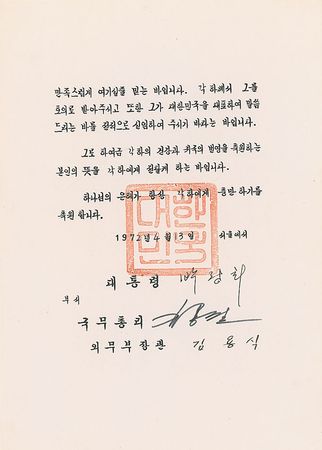 만족스럽게 여기심을 믿는 바입니다. 각하께서 그를
호의로 받아주시고 또한 그가 대한민국을 대표하여 말씀
드리는 바를 전적으로 신임하여 주시기 바라는 바입니다.
그로 하여금 각하의 건강과 귀국의 번영을 축원하는
본인의 뜻을 각하에게 전달케 하는 바입니다.
하나님의 은혜가 항상 각하에게 충만하기를
축원합니다.
1972년 4월 13일 서울에서
대한민국
대통령 박정희
부서
국무총리
외무부장관 김용식